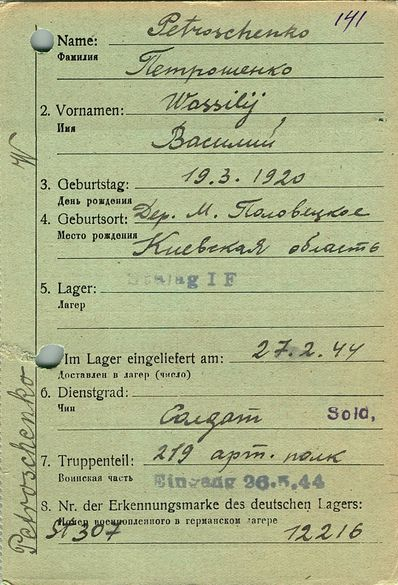 141
Name: Petroschenko
Фамилия
Петрошенко
2. Vornamen: Wassilij
Имя
Василий
3. Geburtstag: 19.3.1920
День рождения
4. Geburtsort: Дер. М. Половецкое
Место рождения
Киевская область
5. Lager: Stalag I F
Лагерь
Im Lager eingeliefert am: 27.2.44
Доставлен в лагерь (число)
6. Dienstgrad:
Чин
Солдат Sold.
7. Truppenteil: 219 арт. полк
Воинская часть Eingang 26.5.44
8. Nr. der Erkennungsmarke des deutschen Lagers:
Номер военнопленного в германском лагере
St 307 12216
Petroschenko
W